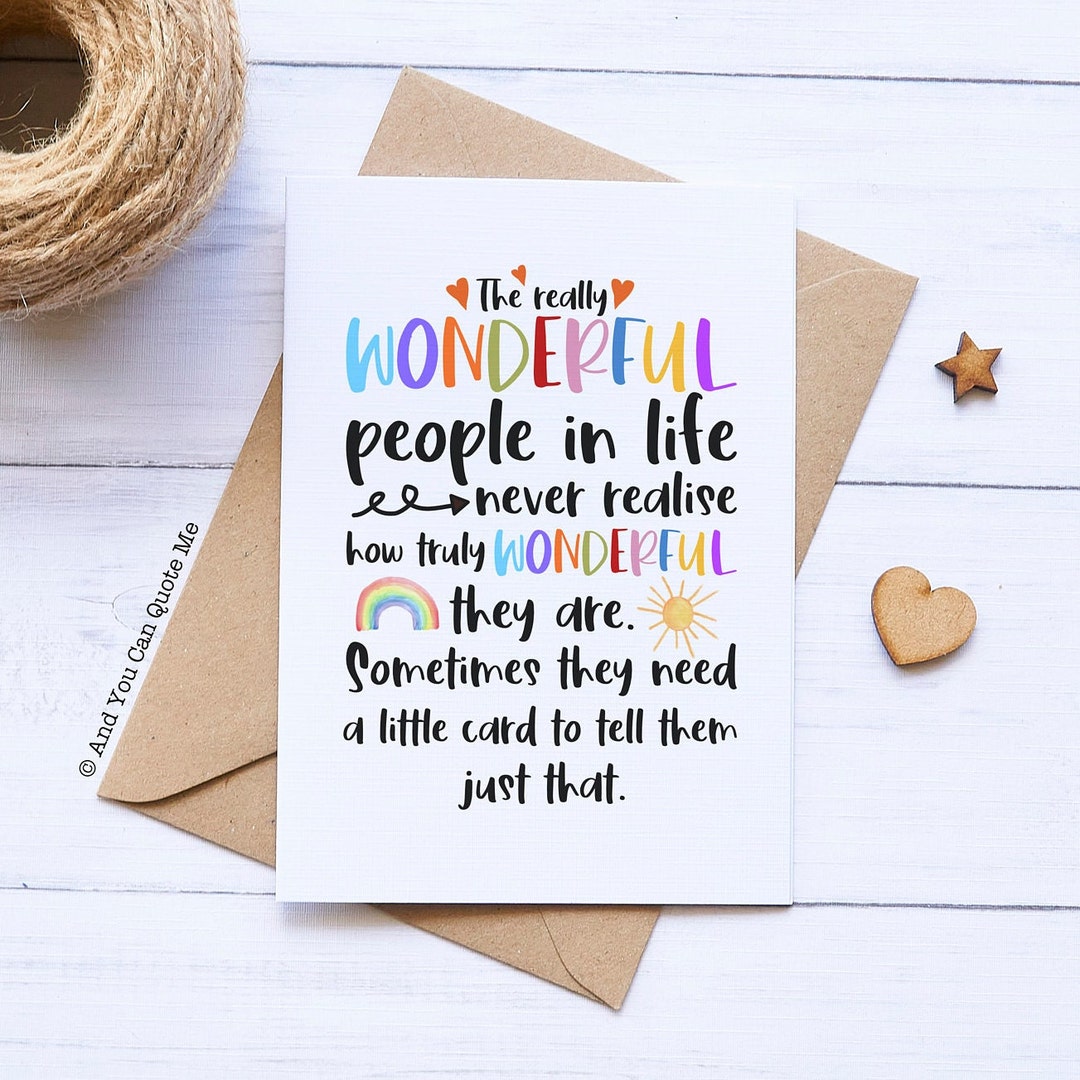 The really
WONDERFUL
people in life
never realise
how truly WONDERFUL
they are.
Sometimes they need
a little card to tell them
just that.
© And You Can Quote Me